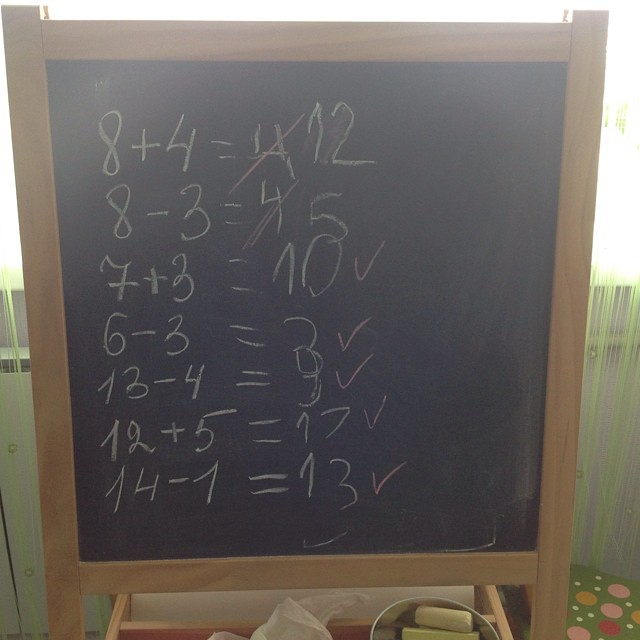 8+4=12
8-3=4 5
7+3=10 ✓
6-3=3 ✓
13-4=9 ✓
12+5=17 ✓
14-1=13 ✓